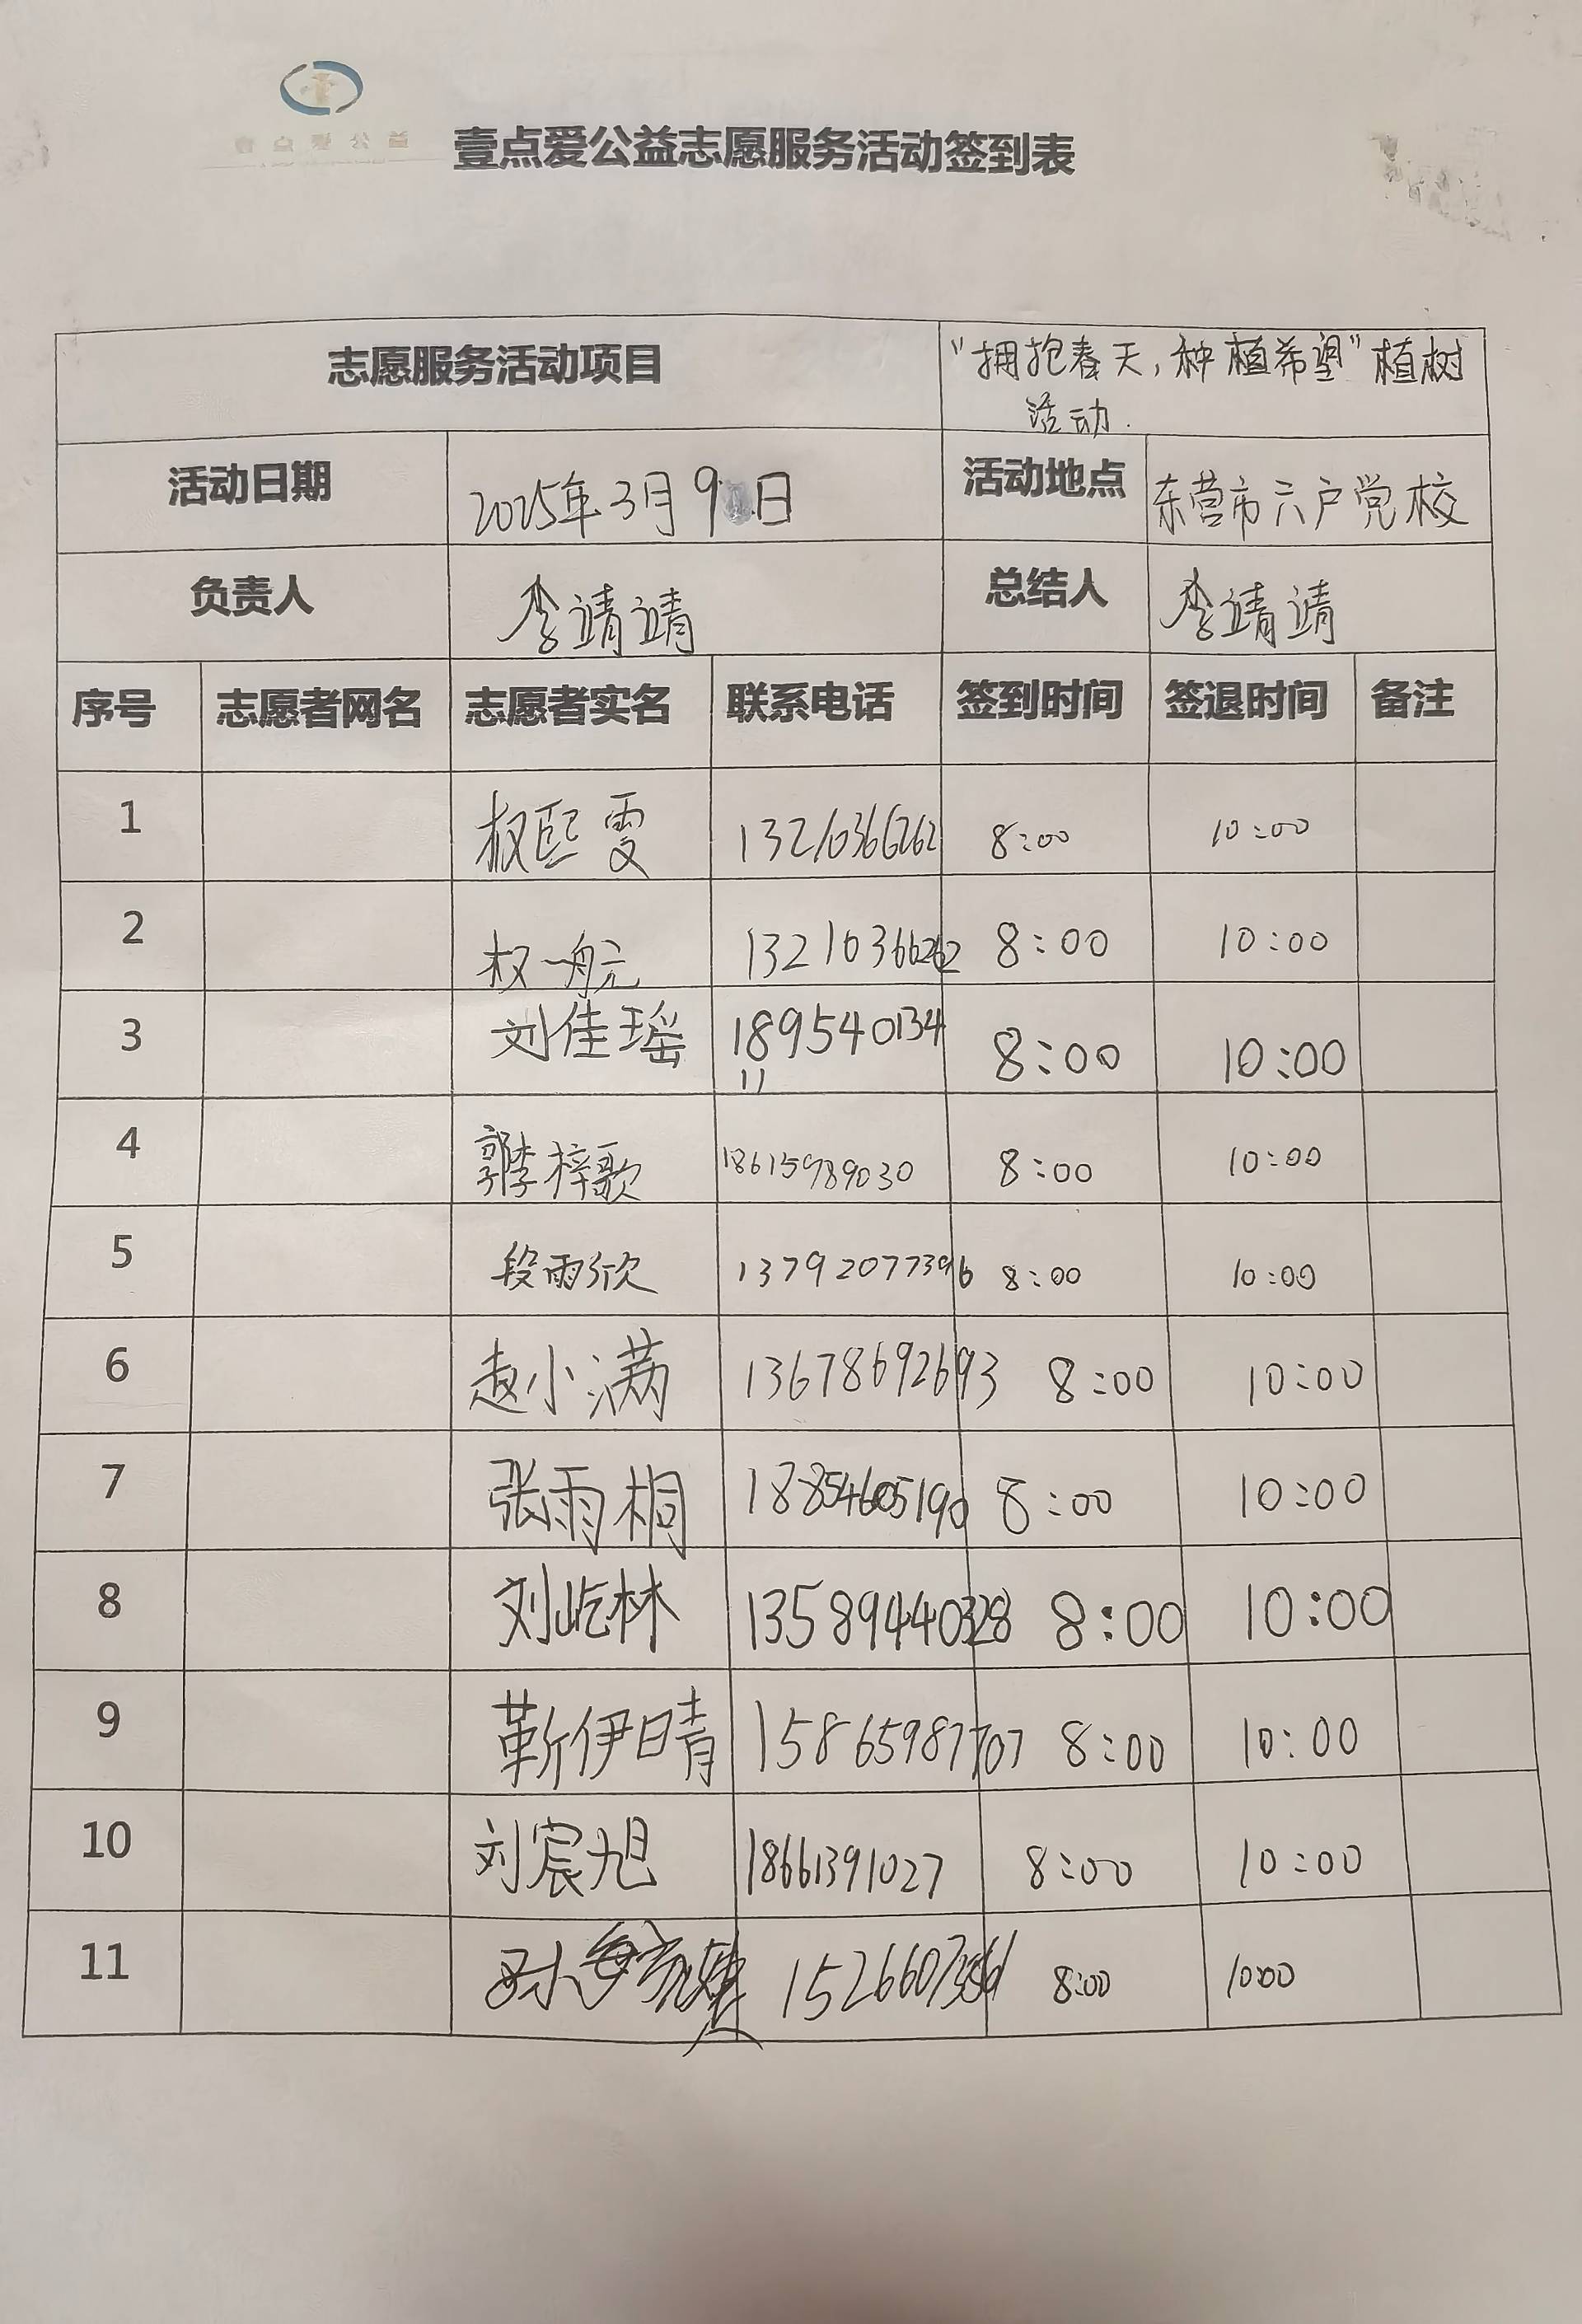 壹点爱公益志愿服务活动签到表
志愿服务活动项目 "拥抱春天,种植希望"植树
活动.
活动日期 2025年3月9日 活动地点 东营市六户党校
负责人 李靖靖 总结人 李靖靖
序号 志愿者网名 志愿者实名 联系电话 签到时间 签退时间 备注
1 权熙雯 13210366262 8:00 10:00
2 权一航 13210366262 8:00 10:00
3 刘佳瑶 189540134 8:00 10:00
11
4 郭李梓歌 18615989030 8:00 10:00
5 段雨欣 13792077396 8:00 10:00
6 赵小满 13678692693 8:00 10:00
7 张雨桐 18854605190 8:00 10:00
8 刘屹林 13589440328 8:00 10:00
9 靳伊晴 15865987707 8:00 10:00
10 刘宸旭 18661391027 8:00 10:00
11 8:00 10:00